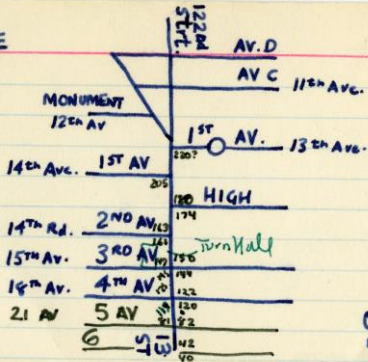 E
122nd Strt.
AV. D
AV C 11th Ave.
MONUMENT
12th AV
1ST AV. 13th Ave.
220?
14th Ave. 1ST AV
205
180 HIGH
174
14TH Rd. 2ND AV 163
161
15TH AV. 3RD AV 147 150 Turn Hall
144
18th Av. 4TH AV 122
120
21 AV 5 AV 82
6 42
40
13 ST